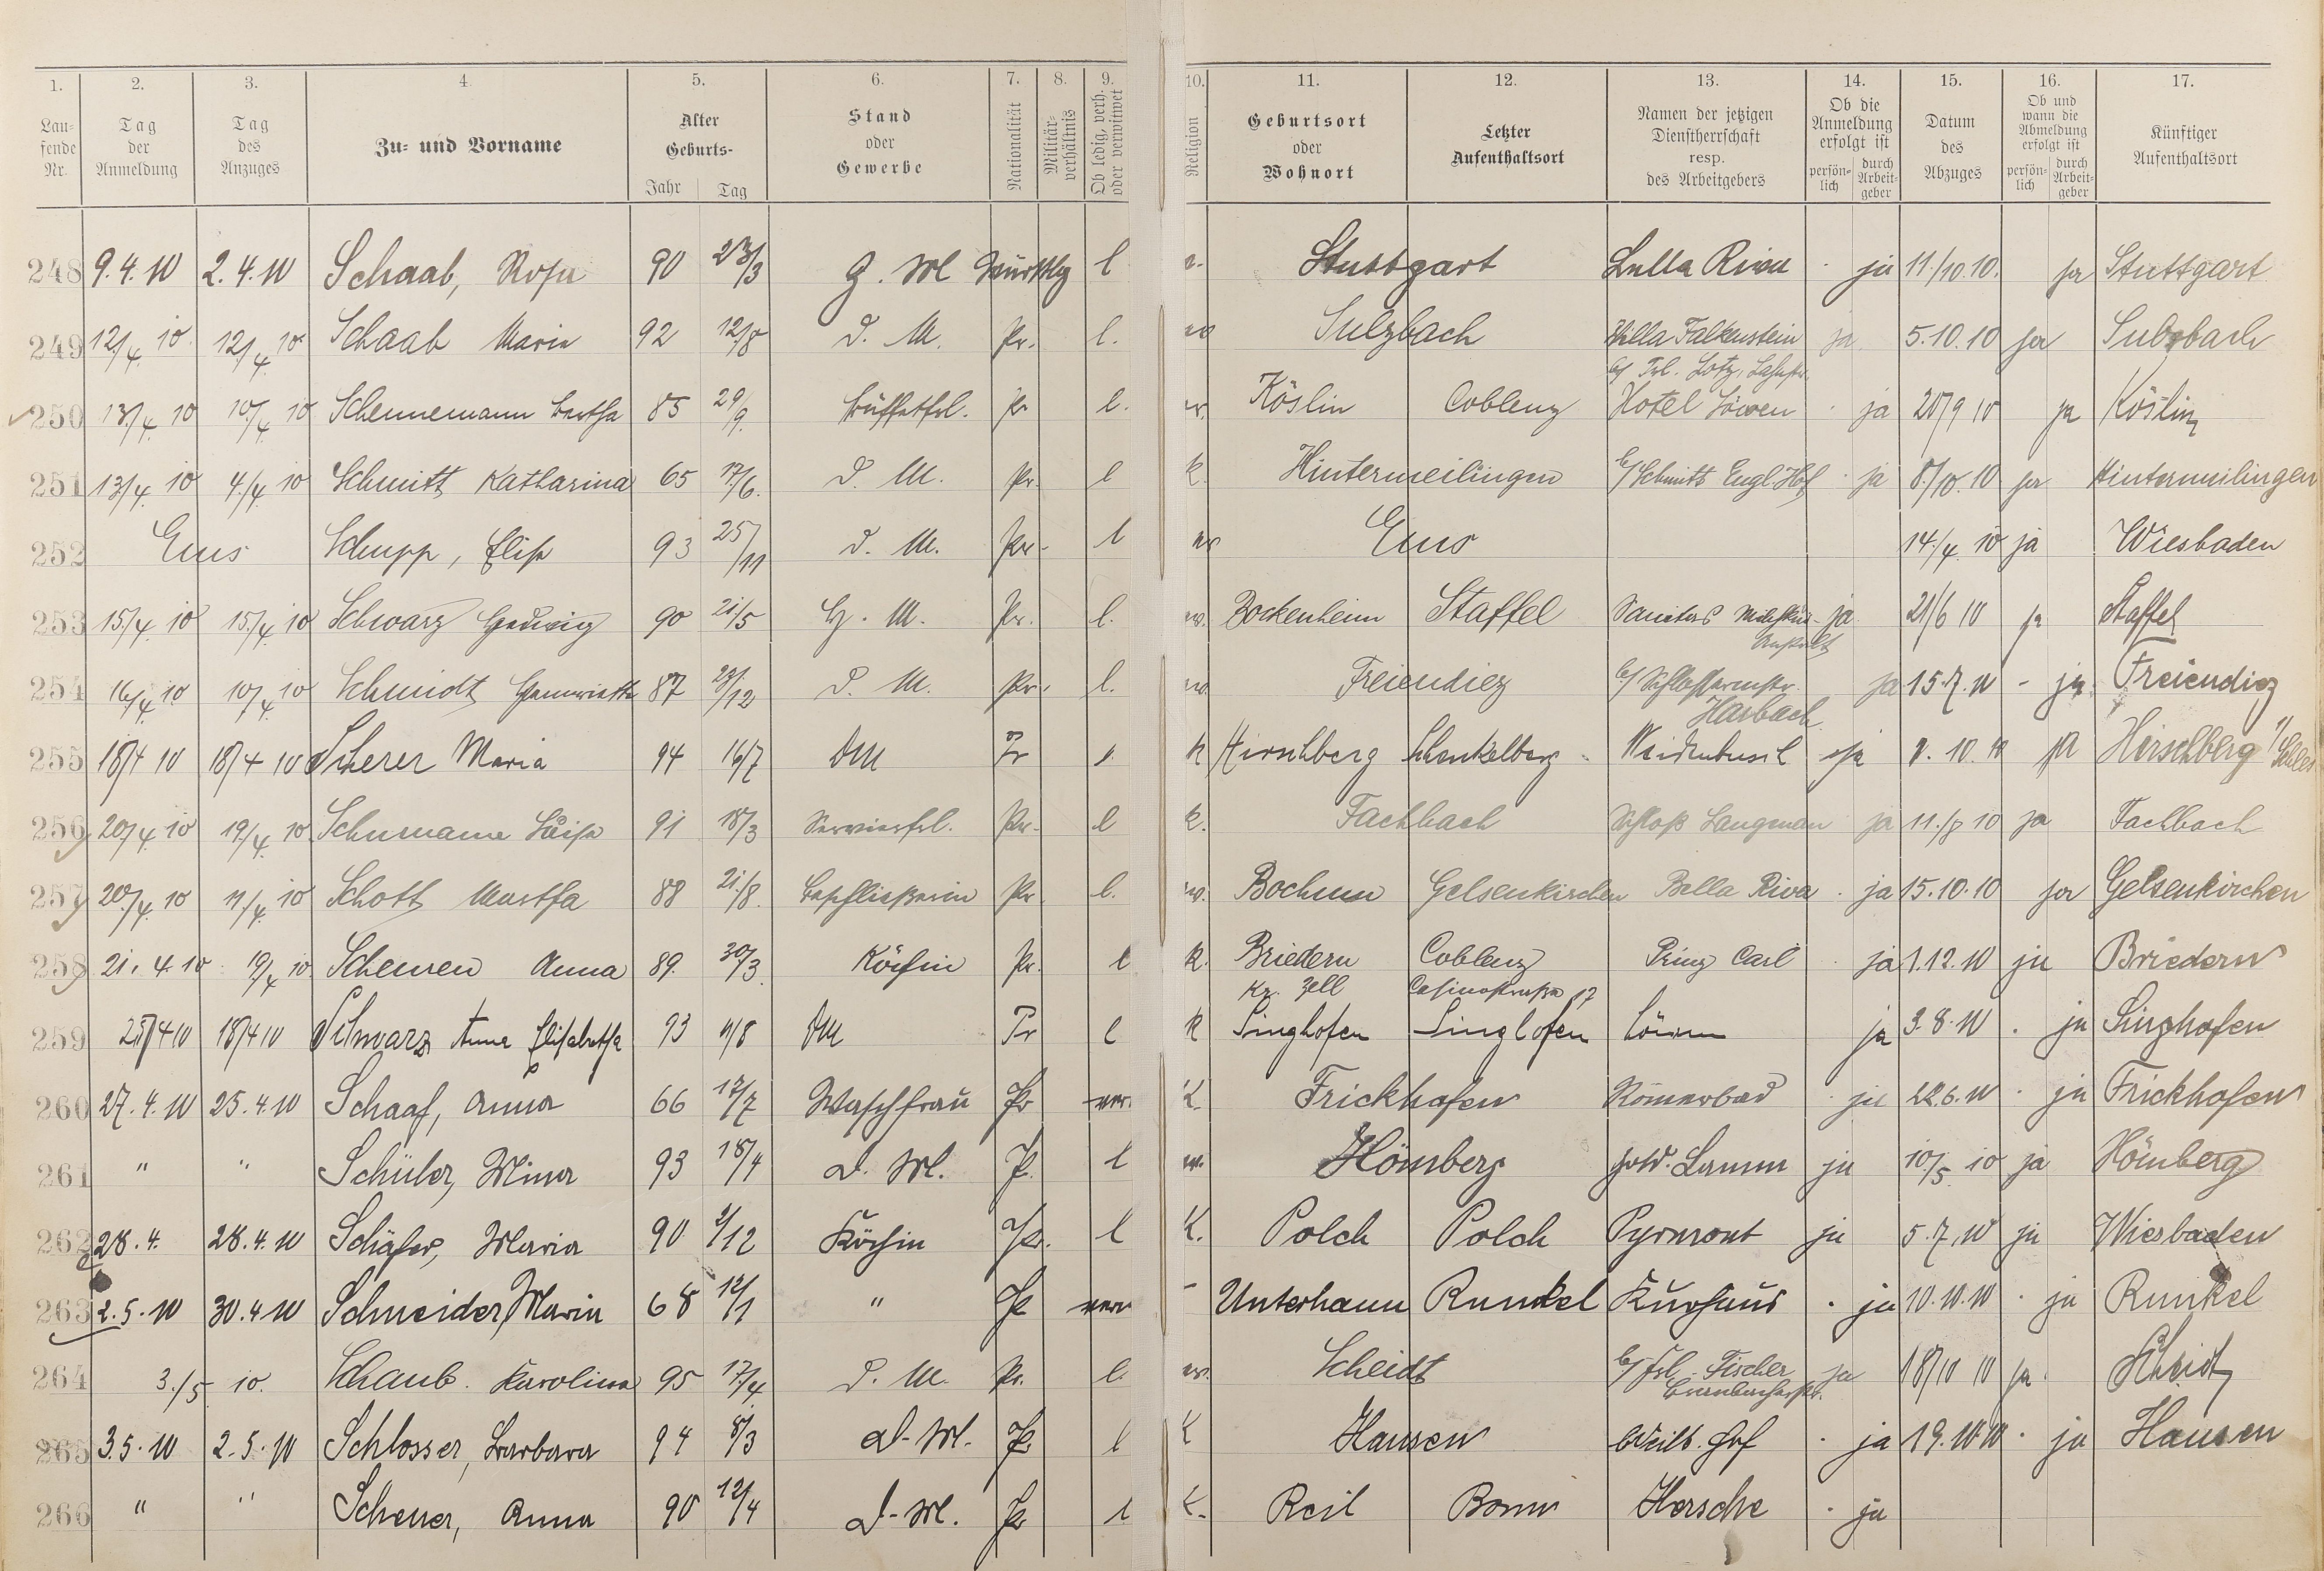 1. 2. 3. 4. 5. 6. 7. 8. 9. 10. 11. 12. 13. 14. 15. 16. 17.
Lau-fende Nr. Tag der Anmeldung Tag des Anzuges Zu- und Vorname Alter Geburts- Jahr Tag Stand oder Gewerbe Nationalität Militär-verhältnis Ob ledig, verh. oder verwitwet Religion Geburtsort oder Wohnort Letzter Aufenthaltsort Namen der jetzigen Dienstherrschaft resp. des Arbeitgebers Ob die Anmeldung erfolgt ist persön-lich durch Arbeit-geber Datum des Abzuges Ob und wann die Abmeldung erfolgt ist persön-lich durch Arbeit-geber Künftiger Aufenthaltsort
248 9.4.10 2.4.10 Schaab, Rosa 90 23/3 Z. M. l Stuttgart ja 11/10.10. ja Stuttgart
249 12/4 10 12/4 10 Schaab Marie 92 12/8 D. M. Pr. l. Sulzbach Villa Falkenstein ja 5.10.10 ja Sulzbach
b/ Frl. Lotz,
250 13/4 10 10/4 10 Schennemann Bertha 85 29/9. Büffetfrl. Pr l. Köslin Coblenz Hotel Löwen ja 20/9 10 ja Köslin
251 13/4 10 4/4 10 Schmitt Katharina 65 17/6. D. M. Pr. l k. Hintermeilingen b/ Schmitt Engl. Hof ja 8/10.10 ja Hintermeilingen
252 Ems Schupp, Elise 93 25/11 D. M. Pr. l Ems 14./4 10 ja Wiesbaden
253 15/4 10 15/4 10 Schwarz Hedwig 90 21/5 M. Pr. l. Bockenheim Staffel ja 21/6 10 ja Staffel
Anstalt
254 16/4 10 10/4 10 Schmidt Henriette 87 29/12 D. M. Pr. l. Freiendiez b/ Schlosserm. ja 15.7.10 - ja Freiendiez
Harbach
255 18/4 10 18/4 10 Scherer Maria 94 16/7 DM Pr l k Hirschberg Schenkelberg Weidenbusch ja 10.10 ja Hirschberg i/ Schles
256 20/4 10 19/4 10 Luise 91 18/3 Servierfrl. Pr. l k. Fachbach Schloß Langenau ja 11./8 10 ja Fachbach
257 20/4 10 11/4 10 Schott Martha 88 21/8. Beschließerin Pr. l. Bochum Gelsenkirchen Bella Riva ja 15.10.10 ja Gelsenkirchen
258 21. 4 10 19/4 10. Scheuren Anna 89. 30/3. Köchin Pr. l k. Briedern Coblenz Prinz Carl ja 1.12.10 ja Briedern
Kr. Zell Casinostraße 17
259 25/4 10 18/4 10 Schwarz Anna Elisabetha 93 11/8 DM Pr l k Singhofen Singhofen Löwen ja 3.8.10 ja Singhofen
260 27.4.10 25.4.10 Schaaf, Anna 66 17/7 Waschfrau Pr verw. K. Frickhofen Römerbad ja 22.6.10 ja Frickhofen
261 " " Schüler, Mina 93 18/4 D. M. P. l Hömberg Gold. Lamm ja 10/5 10 ja Hömberg
262 28.4. 28.4.10 Schäfer, Maria 90 2/12 Köchin Pr. l K. Polch Polch Pyrmont ja 5.7.10 ja Wiesbaden
263 2.5.10 30.4.10 Schneider, Maria 68 12/1 " Pr verw - Runkel Kurhaus ja 10.10.10 ja Runkel
264 3./5 10. Schaub. Karolina 95 17/4. D. M. Pr. l. Scheidt b/ Frl. Fischer ja 18/10 10 ja Scheidt
265 3.5.10 2.5.10 Schlosser, Barbara 94 8/3 D. M. Pr l K Hausen Weilb. Hof ja 19.10.10 ja Hausen
266 " " Scheuer, Anna 90 12/4 D. M. Pr l K. Reil Bonn Hersche ja